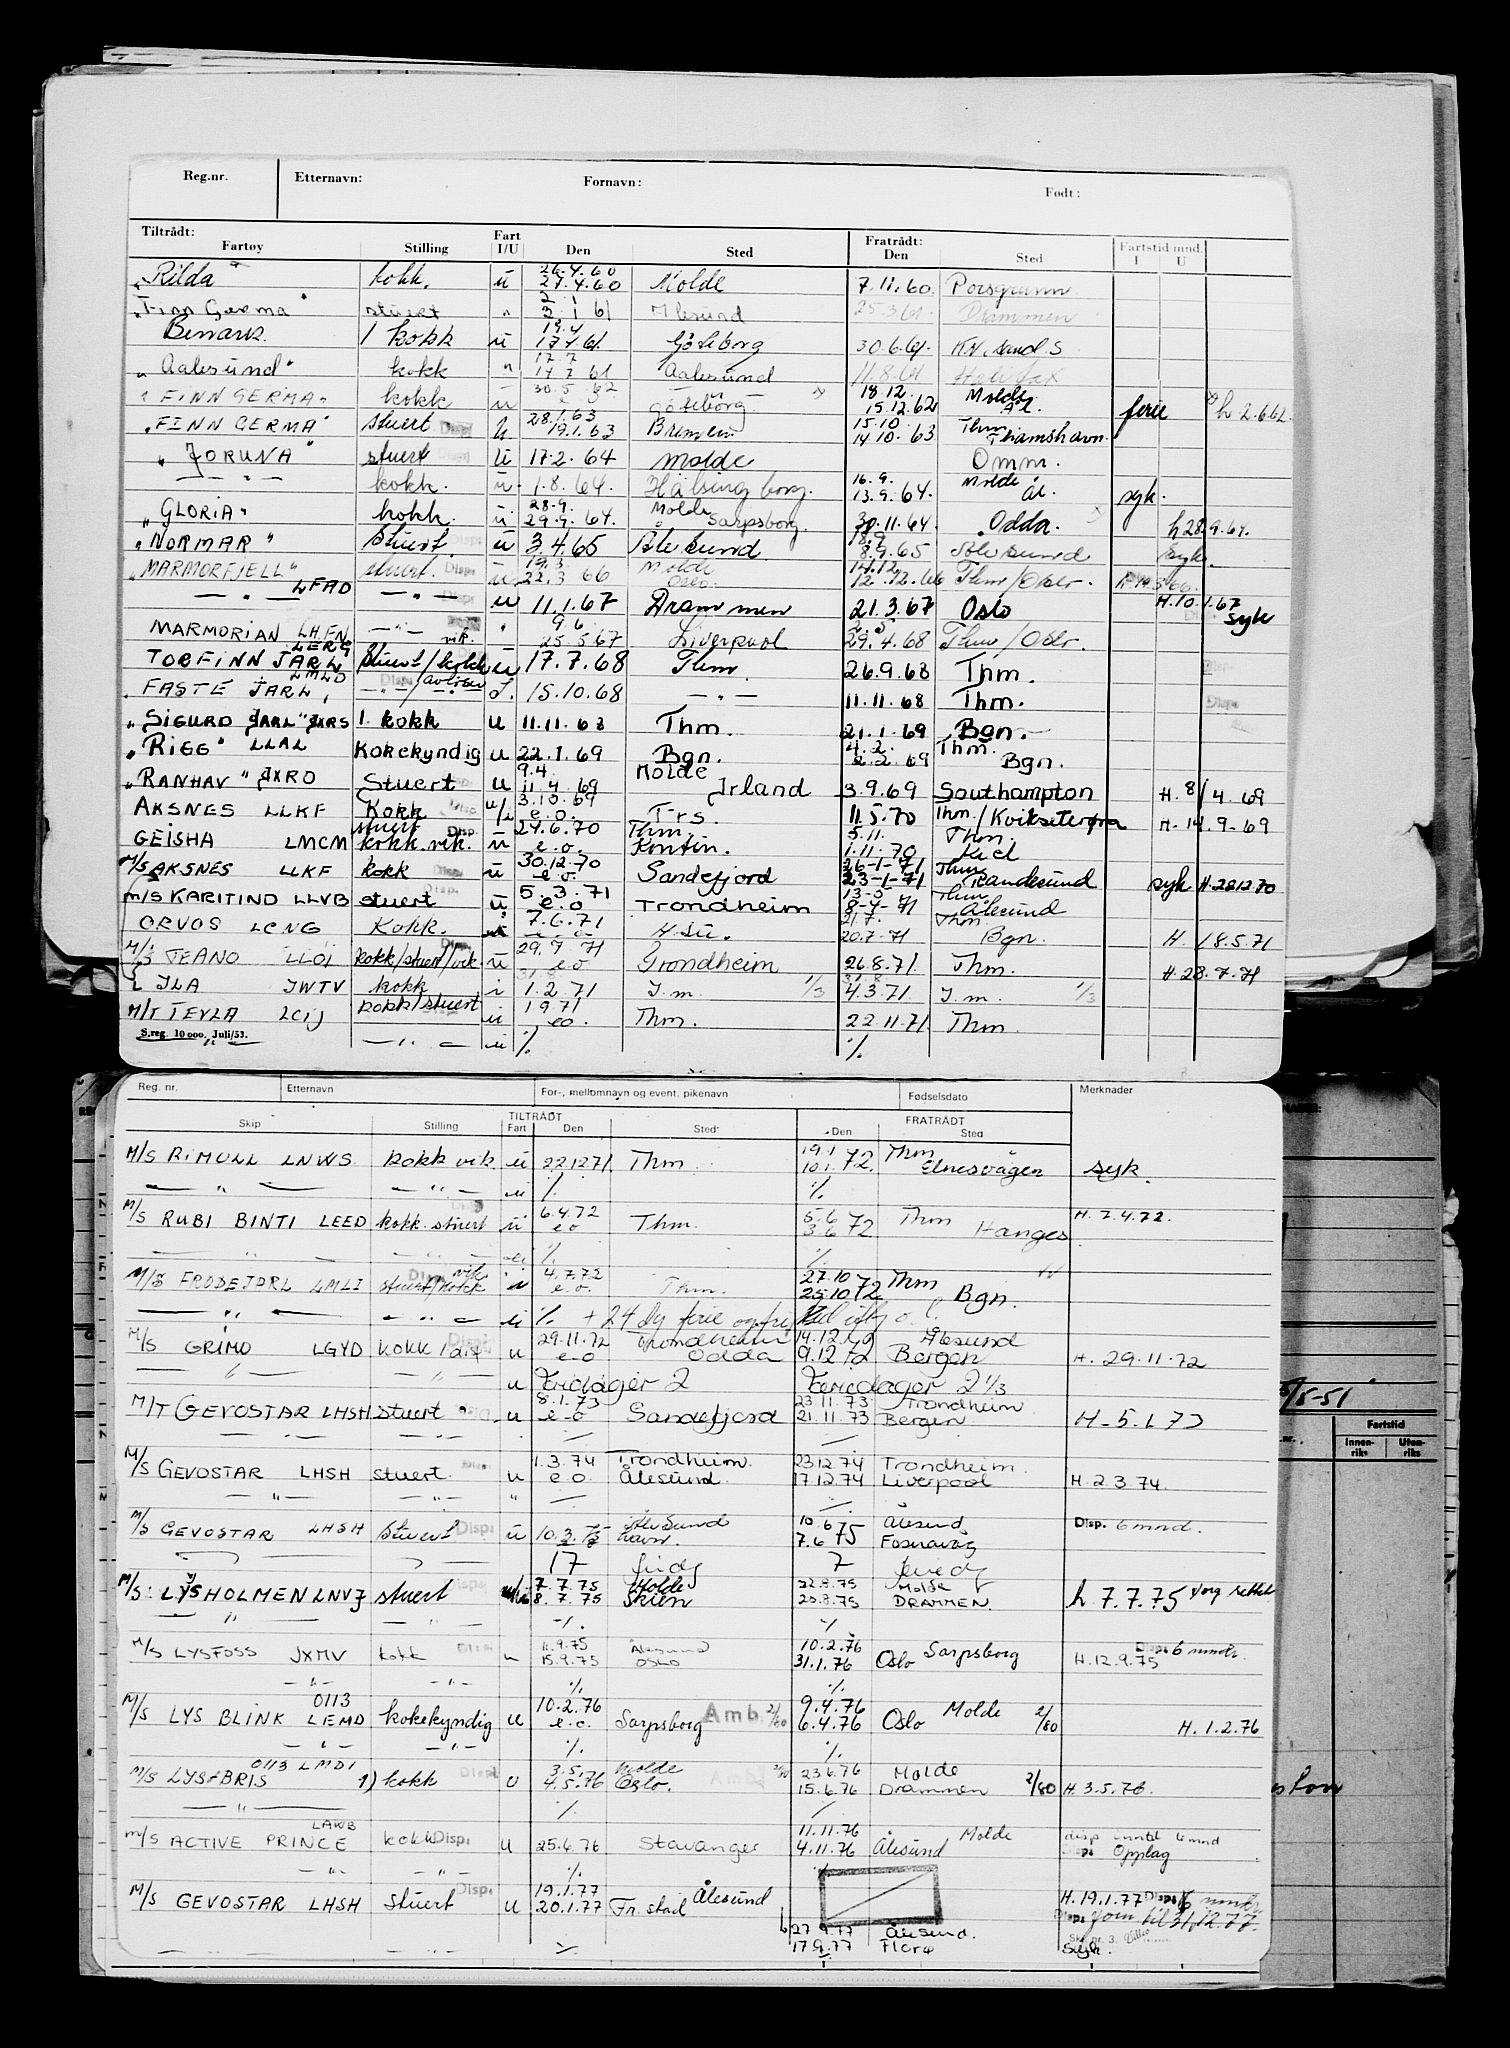 Reg.nr. Etternavn: Fornavn: Født:
Tiltrådt: Fart Fratrådt: Fartstid mnd.
Fartøy Stilling I/U Den Sted Den Sted I U
26.4.60
"Rilda" kokk. u 27.4.60 Molde 7.11.60. Porsgrunn
2 1
"Finn Germa" stuert " 3 1 61 Ålesund 25.3.61. Drammen
19.4
Benark 1 kokk u 17 4 61. Göteborg 30.6.61. Kr. sand S
17 7
"Aalesund" kokk " 17 7 61 Aalesund 11.8.61 Halifax
30.5.62 18.12. Molde
"FINN GERMA" kokk u Göteborg 15.12.62 Ål. ferie h 2.6.62.
28.1.63 15.10 Thm
"FINN GERMA" stuert u 19.1.63 Bremen 14 10.63 Thamshavn.
"JORUNA" stuert u 17.2.64 Molde Omm.
16.9. Molde
— " — kokk. u 1.8.64. Hälsingborg. 13.9.64. Ål. syk.
28.9. Molde
"GLORIA" kokk. u 29.9.64. Sarpsborg. 30.11.64. Odda. h 28.9.64.
18.9
"NORMAR" Stuert Disp. u 3.4.65 Ålesund 8.9.65 Ålesund syk.
19.3 Molde 14.12
"MARMORFJELL" stuert. Disp. u 22.3 66 Oslo. 12.12.66 Thm/Odr.
— " — LFAD — " — u 11.1.67 Drammen 21.3.67 Oslo H.10.1.67 syk
9 6 2.5
MARMORIAN LHFN — " — vik. " 25.5 67 Liverpool 29.4.68 Thm/Odr.
LERG
TORFINN JARL Stuert/kokk u 17.7.68 Thm. 26.9.68 Thm. Disp.
LMLD
"FASTE JARL" — " —/avløser I. 15.10.68 — " — 11.11.68 Thm. Disp.
"SIGURD JARL" JXRS 1. kokk u 11.11.68 Thm. 21.1.69 Bgn.
4.2. Thm.
"RIGG" LLAL Kokekyndig u 22.1.69 Bgn. 2.2.69 Bgn.
9.4 Molde
"RANHAV" JXRO Stuert u 11 4 69 Irland 3.9.69 Southampton H. 8/4.69
3.10.69
AKSNES LLKF Kokk u/i e.o. Trs. 11.5.70 Thm./Kviksetergra H. 14.9-69
stuert 24.6.70 Thm. 5.11. Thm.
GEISHA LMCM kokk. vik. Disp. u e.o. Kontin. 1.11.70 Kiel
30.12.70 26-1-71 Thm
M/S AKSNES LLKF kokk u e.o. Sandefjord 23-1-71 Randesund syk H 28.12.70
5.3.71 13-5- Thm.
M/S KARITIND LLVB stuert Disp. u e.o Trondheim 8-4-71 Ålesund
7.6.71 21.7. Thm
ORVOS LCNG Kokk. 20.7.71 Bgn. H. 18.5.71
29.7 71
M/S TEANO LLOI kokk/stuert/vik u e.o Trondheim 26.8.71. Thm. H 28.7.71
ILA JWTV kokk i 1.2.71 I.m. 1/3 4.3.71 I.m. 1/3
kokk/stuert 1 9 71
M/T TEVLA LCIJ u e.o. Thm. 22.11.71 Thm.
S.reg. 10 000. Juli/53.
— " — u % %
Reg. nr. Etternavn For-, mellomnavn og event. pikenavn Fødselsdato Merknader
TILTRÅDT FRATRÅDT
Skip Stilling Fart Den Sted Den Sted
19.1 Thm
M/S RIMULL LNWS kokk vik. u 22 12 71. Thm. 10.1.72. Elnesvågen syk.
— " — — " — u % %
6.4.72 5.6 Thm H. 7.4.72.
M/S RUBI BINTI LEED kokk. stuert u e.o Thm. 3.6 72 Hanges
— " — — " — u % %
vik. 4.7.72 27.10 Thm
M/S FRODEJARL LMLI stuert/kokk u e.o. Thm. 25.10 72 Bgn.
— " — — " — u % + 24 dg ferie
29.11.72 Trondheim 14.12.72 Ålesund
M/S GRIMO LGYD kokk u e.o Odda 9.12 72 Bergen H. 29.11.72
— " — — " — u Fridager 2 Feriedager 2 1/3
8.1.73 23.11.73. Trondheim
M/T GEVOSTAR LHSH stuert u e-o Sandefjord 21.11.73 Bergen H-5.1.73
— " — — " —
1.3.74 Trondheim. 23.12.74 Trondheim
M/S GEVOSTAR LHSH stuert. u e.o. Ålesund. 17.12.74 Liverpool H.2.3.74.
— " — — " — "
Ålesund 10.6 Ålesund Disp. 6 mnd.
M/S GEVOSTAR LHSH Stuert Disp. u 10.3.75 havn. 7.6 75 Fosnavåg
17 7
7.7.75 Molde 22.8.75 Molde
M/S: LYSHOLMEN LNVJ stuert 8.7.75 Skien 20.8.75 DRAMMEN. h 7.7.75
— " — — " — % %
11.9.75 Ålesund 10.2.76 Sarpsborg Disp. 6 mndr.
M/S LYSFOSS JXMV kokk u 15.9.75 OSLO 31.1.76 Oslo H.12.9.75
— " — — " — %
0113 10.2.76 9.4.76 Molde
M/S LYS BLINK LEMD kokekyndig u e.o. Sarpsborg Amb. 2/80 6.4.76 Oslo 2/80 H. 1.2.76
— " — — " — % %
0113 LMDI 3.5. Molde 23.6.76 Molde
M/S LYSBRIS 1) kokk u 4.5.76 Oslo. 15.6.76 Drammen 2/80 H. 3.5.76.
— " — % %
LAWB 11.11.76 Molde disp inntil 6 mnd
M/S ACTIVE PRINCE kokk Disp. u 25.6.76 Stavanger 4.11.76 Ålesund Opplag
— " — — " — % %
19.1.77 Ålesund H.19.1.77 Disp. 6 mndr.
M/S GEVOSTAR LHSH Stuert Disp. u 20.1.77 Fr.stad Disp. til 31.12.77.
27.9.77 Ålesund.
17.9.77 Florø Syk.
— " — — " — %
/5-51
Fartstid
Innen-riks Uten-riks